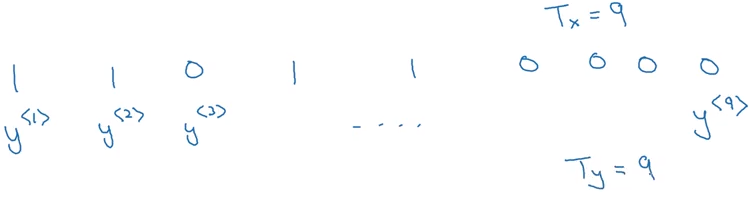 Tx = 9
1 1 0 1 1 0 0 0 0
y<1> y<2> y<3> - . . . . y<9>
Ty = 9